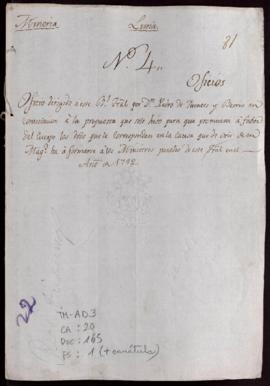 Mineria Lima
81
N.º 4.
Oficios
Oficio dirigido a este R.l Tral por D.n Pedro de Fuentes y Berrio en
contestacion à la propuesta que este hizo para que
del Cuerpo los dros que le corresponden en la causa que de orn de su
Mag.d ha à formarse a los Ministros de este Tral en el
Año de 1792
22
TM-AD3
CA: 20
DOC: 165
FS: 1 (+ carátula)